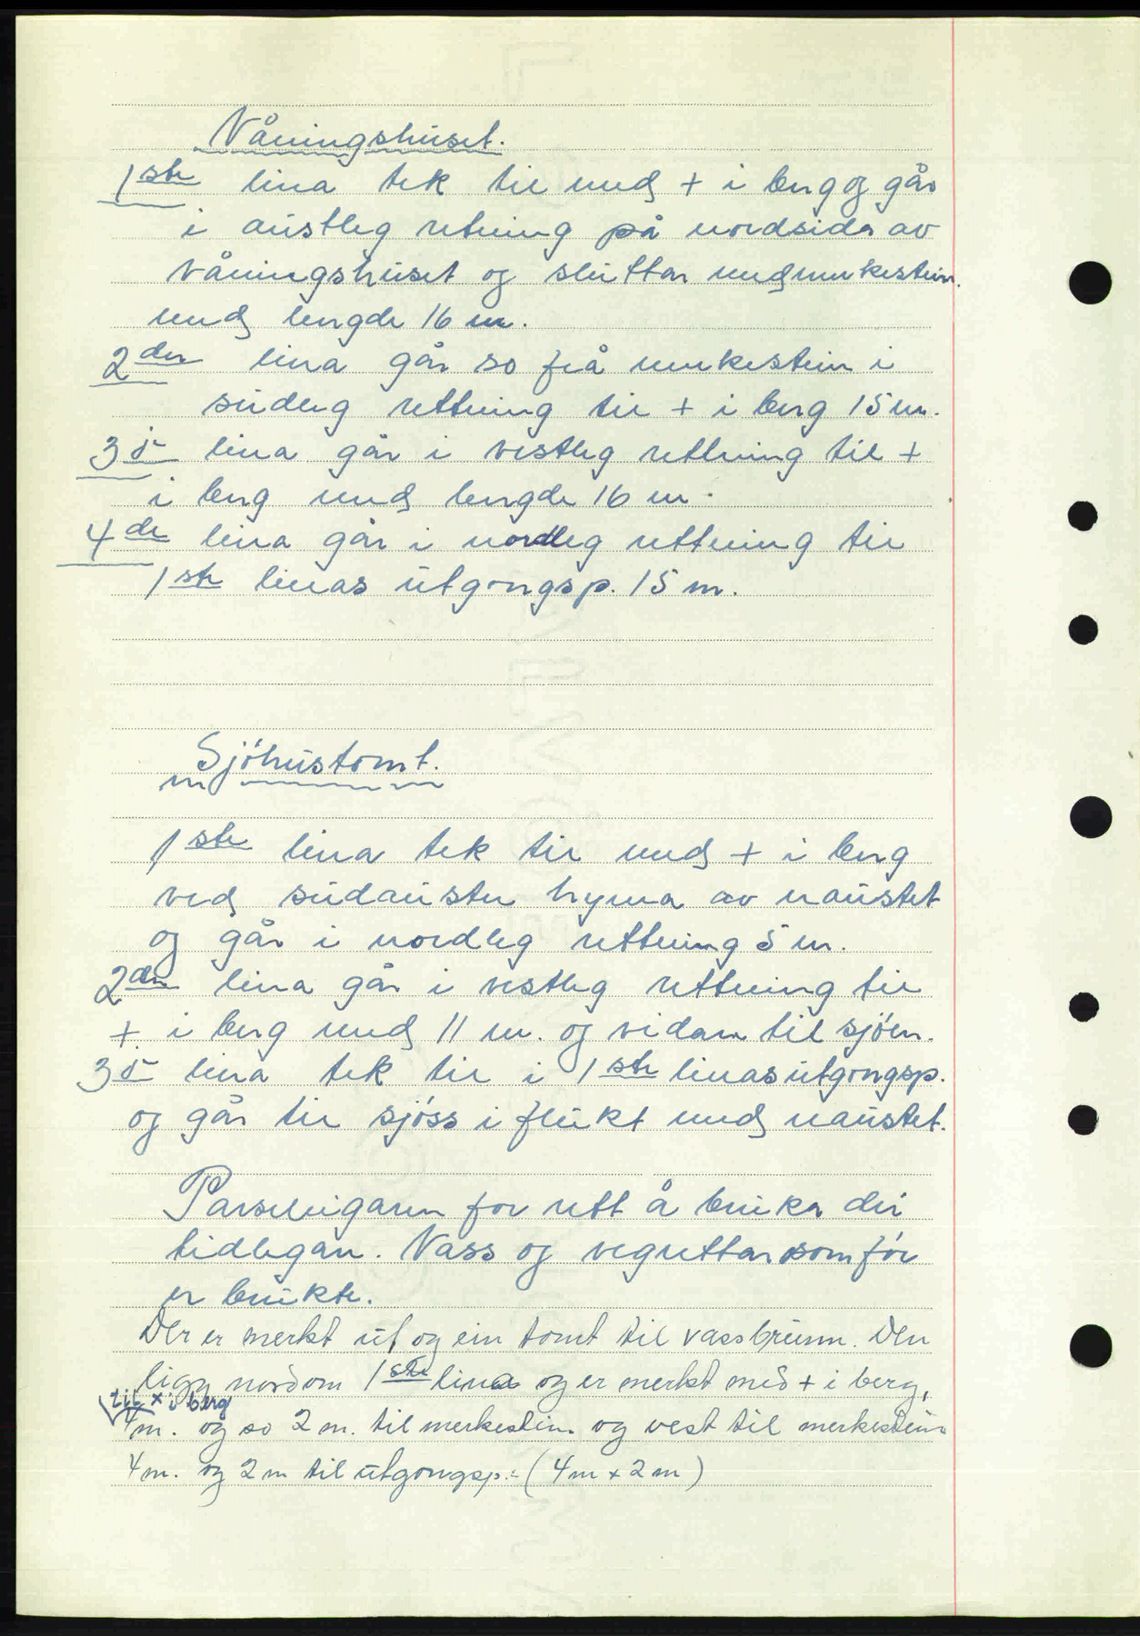 Våningshuset.
1ste lina tek til med + i berg og går
i austleg retning på nordsida av
våningshuset og sluttar med merkestein
med lengde 16 m.
2den lina går so frå merkestein i
sudleg rettning til + i berg 15 m.
3ie lina går i vestleg rettning til +
i berg med lengde 16 m.
4de lina går i nordleg rettning til
1ste linas utgongsp. 15 m.
Sjöhustomt.
1ste lina tek til med + i berg
ved sudaustre hyrna av naustet
og går i nordleg rettning 5 m.
2den lina går i vestleg rettning til
+ i berg med 11 m. og vidare til sjöen.
3ie lina tek til i 1ste linas utgongsp.
og går til sjöss i flukt med naustet.
Parseleigaren for rett å bruka dei
tidlegare. Vass og vegrettar som för
er brukte.
Der er merkt ut og ein tomt til vassbrunn. Den
ligg nordom 1ste lina og er merkt med + i berg,
til x i berg
4m. og so 2 m. til merkestein og vest til merkestein
4m. og 2 m til utgongsp. = (4m x 2m)